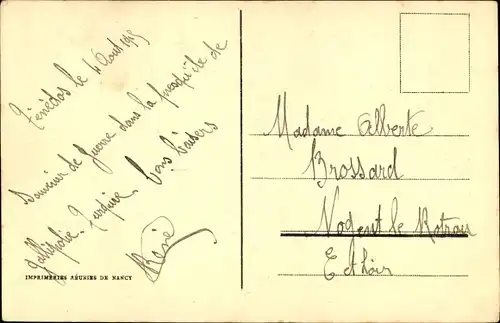 Ténédos le 4 Août 1915
Souvenir de guerre dans la presqu'ile de
Gallipolie. Turquie. Bons Baisers
René
IMPRIMERIES RÉUNIES DE NANCY
Madame Alberte
Brossard
Nogent le Rotrou
E et Loir